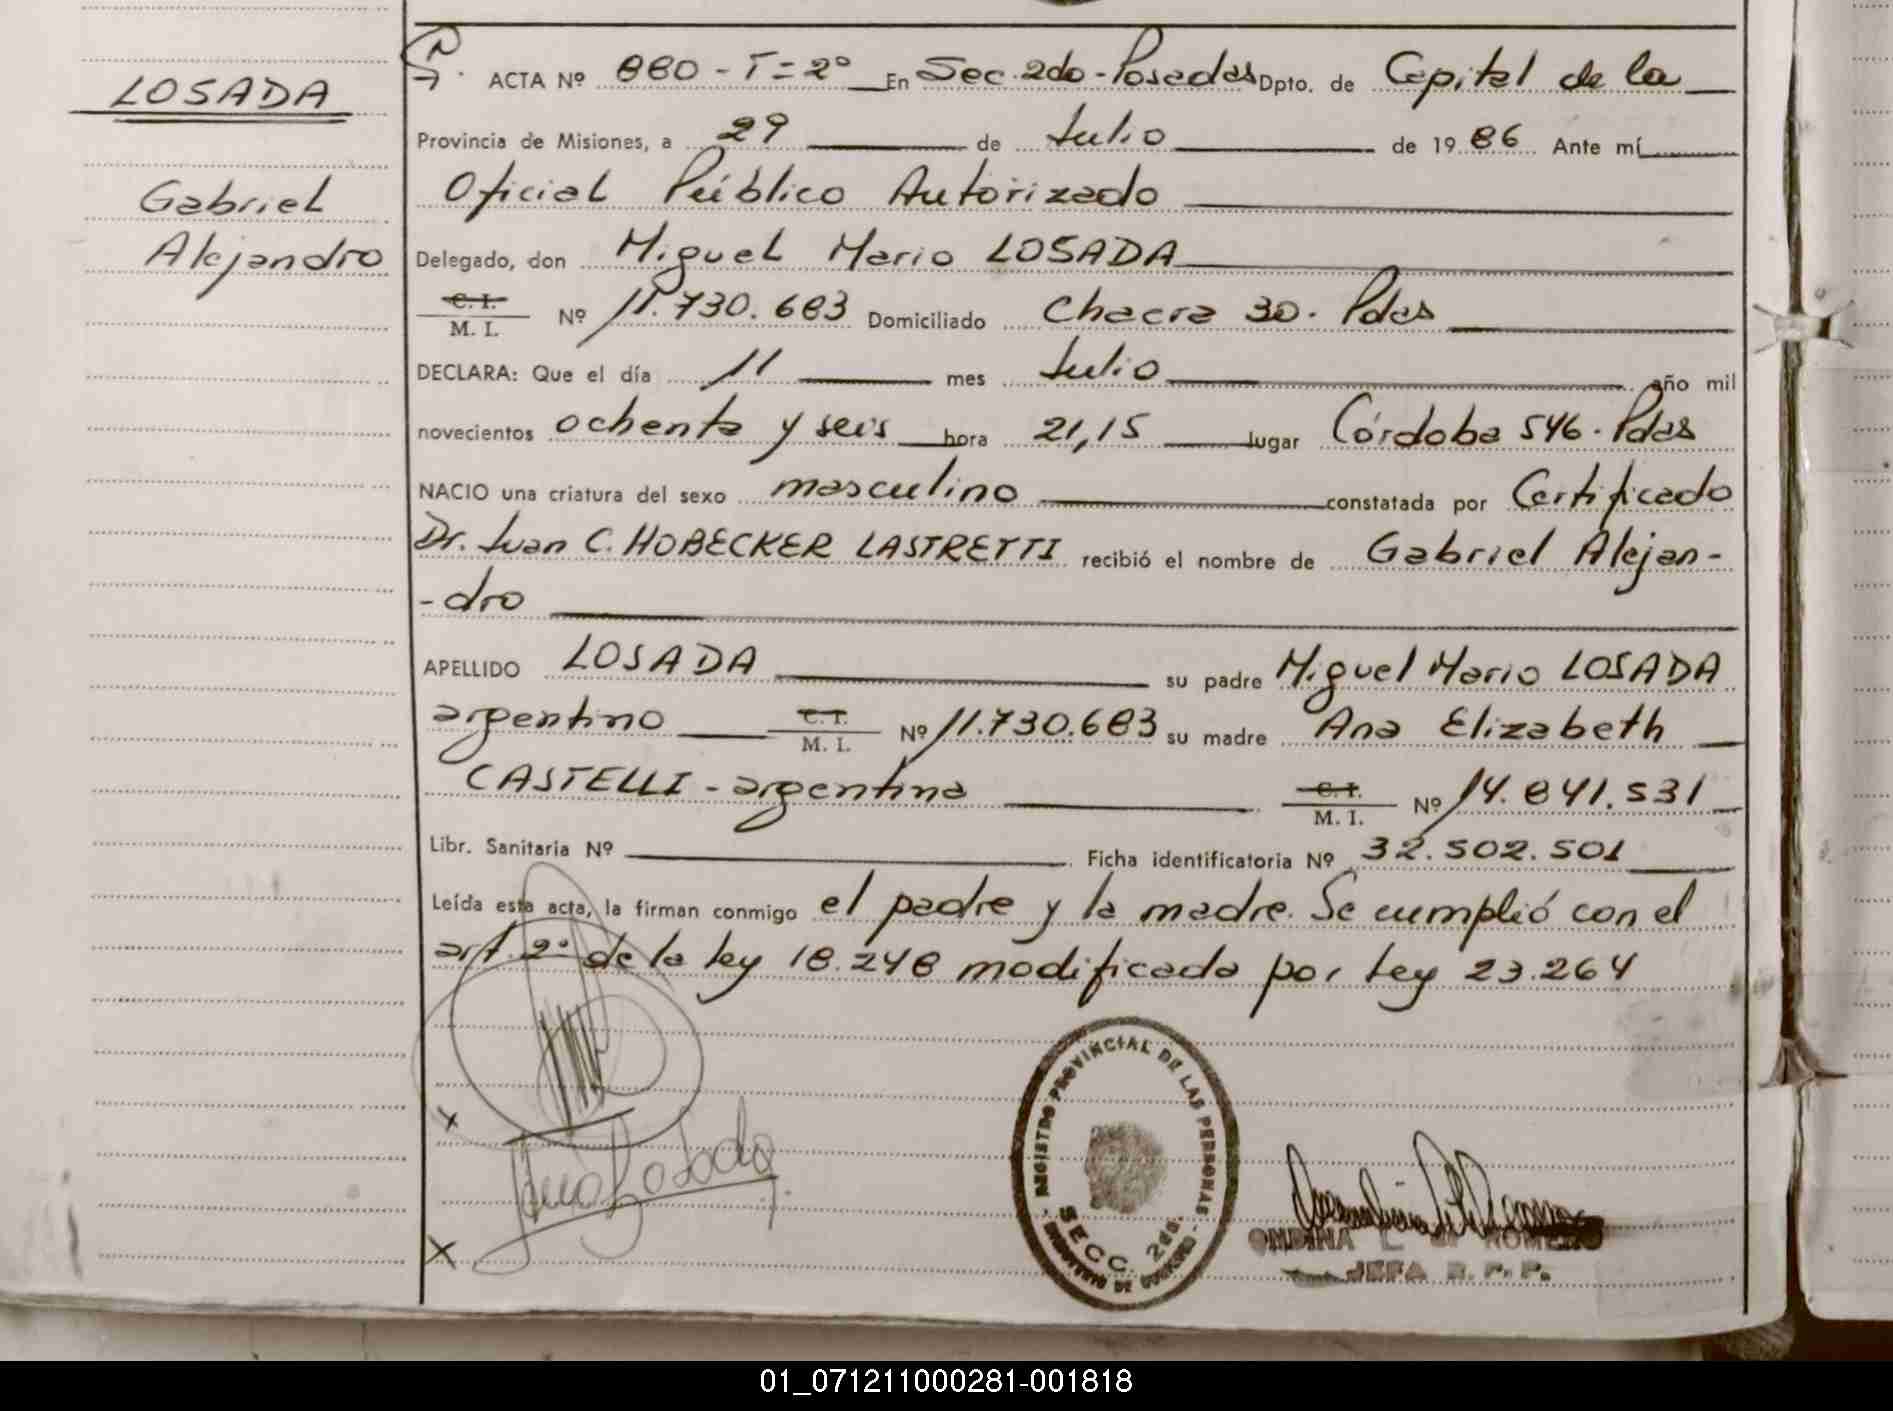 LOSADA
Gabriel
Alejandro
ACTA Nº 880 - T = 2º En Sec. 2do - Posadas Dpto. de Capital de la
Provincia de Misiones, a 29 de Julio de 19 86 Ante mí
Oficial Público Autorizado
Delegado, don Miguel Mario LOSADA
C. I.
M. I. Nº 11.730.683 Domiciliado Chacra 30. Pdas
DECLARA: Que el día 11 mes Julio año mil
novecientos ochenta y seis hora 21,15 lugar Córdoba 546. Pdas
NACIO una criatura del sexo masculino constatada por Certificado
Dr. Juan C. HOBECKER LASTRETTI recibió el nombre de Gabriel Alejan-
-dro
APELLIDO LOSADA su padre Miguel Mario LOSADA
argentino C. I. M. I. Nº 11.730.683 su madre Ana Elizabeth
CASTELLI - argentina C. I. M. I. Nº 14.841.531
Libr. Sanitaria Nº Ficha identificatoria Nº 32.502.501
Leída esta acta, la firman conmigo el padre y la madre. Se cumplió con el
art. 2º de la ley 18.248 modificada por ley 23.264
REGISTRO PROVINCIAL DE LAS PERSONAS
SECC. 2da.
x
Losada
x
ONDINA L. de ROMERO
JEFA R. P. P.
01_071211000281-001818